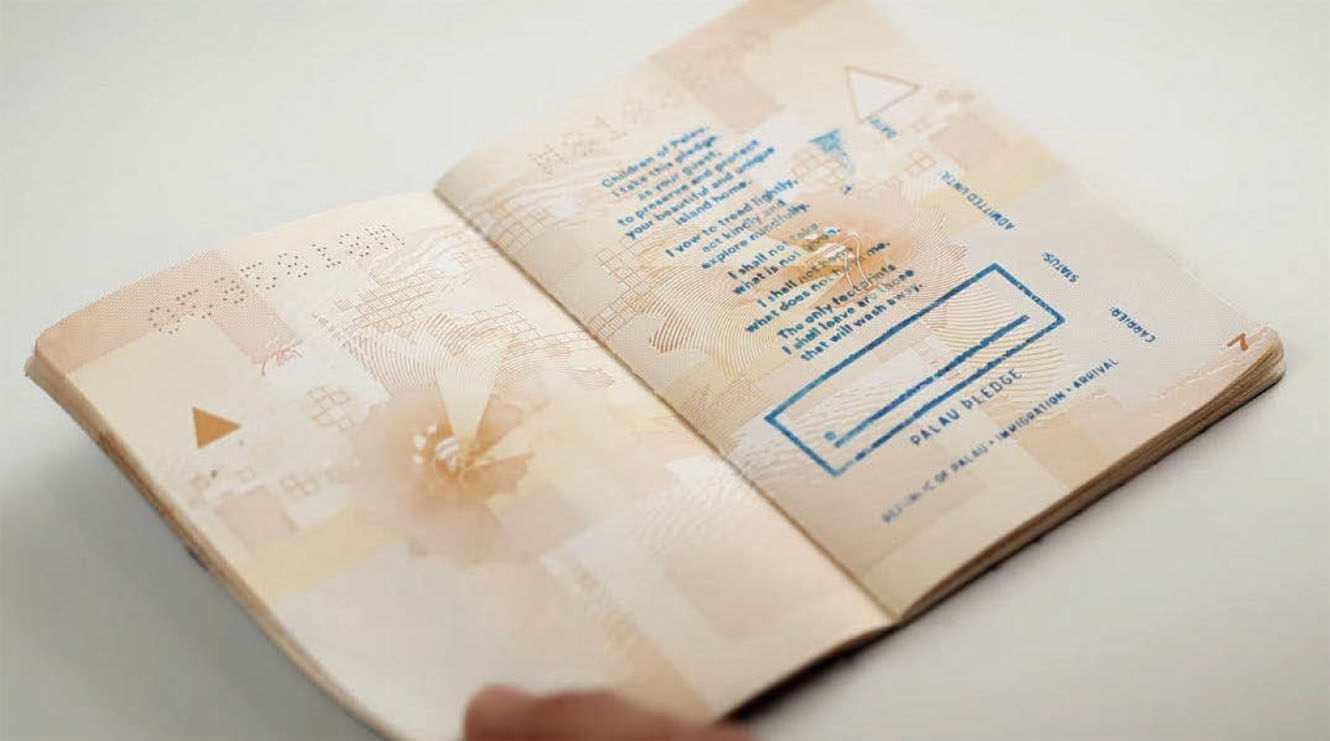 Children of Palau,
I take this pledge,
as your guest,
to preserve and protect
your beautiful and unique
island home.
I vow to tread lightly,
act kindly and
explore mindfully.
I shall not
what is not
I shall not harm
what does not harm me.
The only footprints
I shall leave are those
that will wash away.
PALAU PLEDGE
REPUBLIC OF PALAU • IMMIGRATION • ARRIVAL
ADMITTED UNTIL:
STATUS:
CARRIER:
7